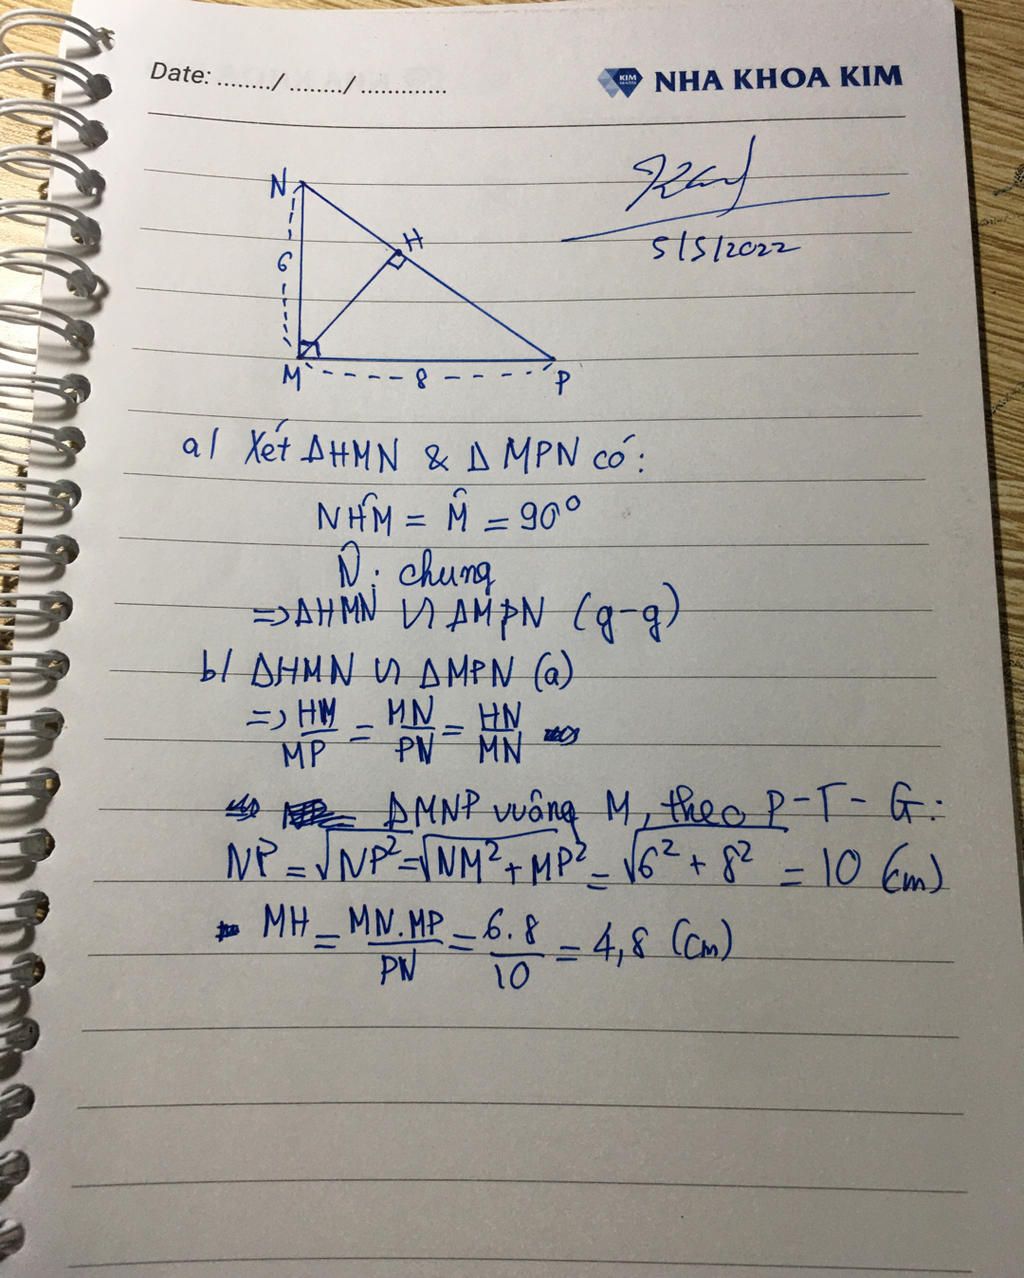 Date: ......../ ......../ .............
KIM
NHA KHOA KIM
5/5/2022
N
H
6
M
8
P
a/ Xét ΔHMN & ΔMPN có:
NĤM = M̂ = 90°
N̂: chung
=> ΔHMN ∽ ΔMPN (g-g)
b/ ΔHMN ∽ ΔMPN (a)
=> HM/MP = MN/PN = HN/MN
ΔMNP vuông M, theo P-T-G:
NP = √NP² = √NM² + MP² = √6² + 8² = 10 (cm)
MH = MN.MP/PN = 6.8/10 = 4,8 (cm)